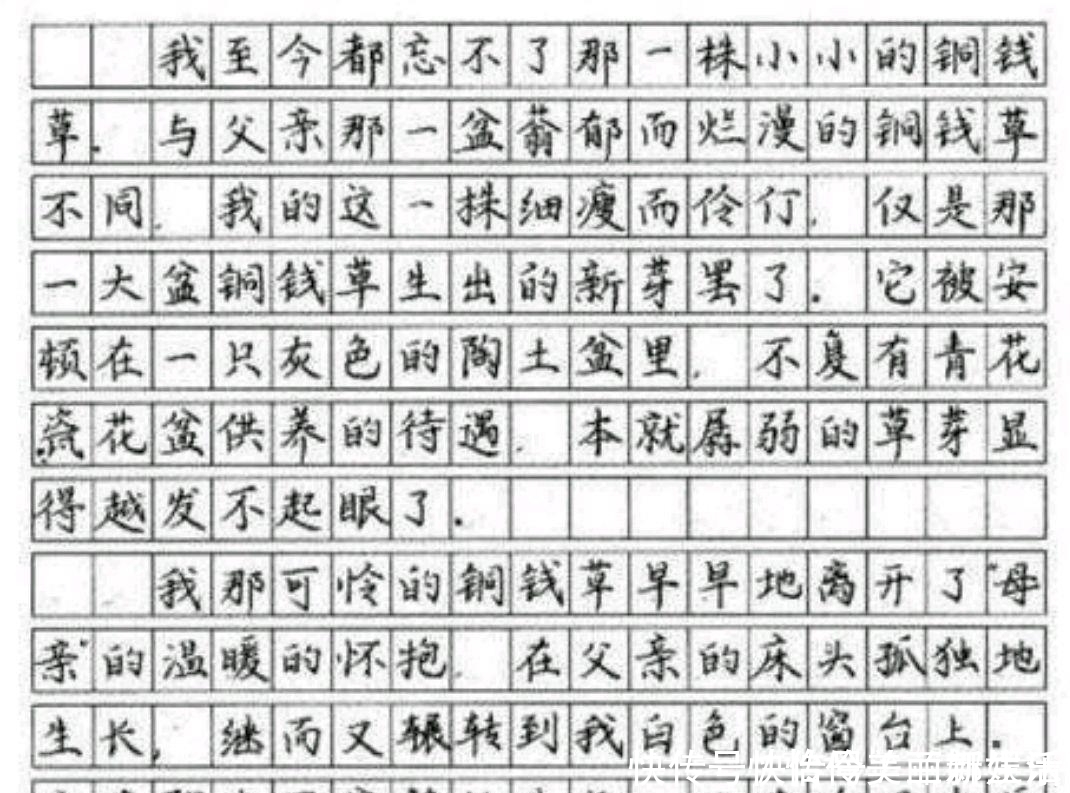 我至今都忘不了那一株小小的铜钱
草. 与父亲那一盆蓊郁而烂漫的铜钱草
不同, 我的这一株细瘦而伶仃, 仅是那
一大盆铜钱草生出的新芽罢了. 它被安
顿在一只灰色的陶土盆里, 不复有青花
瓷花盆供养的待遇, 本就孱弱的草芽显
得越发不起眼了.
我那可怜的铜钱草早早地离开了“母
亲”的温暖的怀抱, 在父亲的床头孤独地
生长, 继而又辗转到我白色的窗台上.